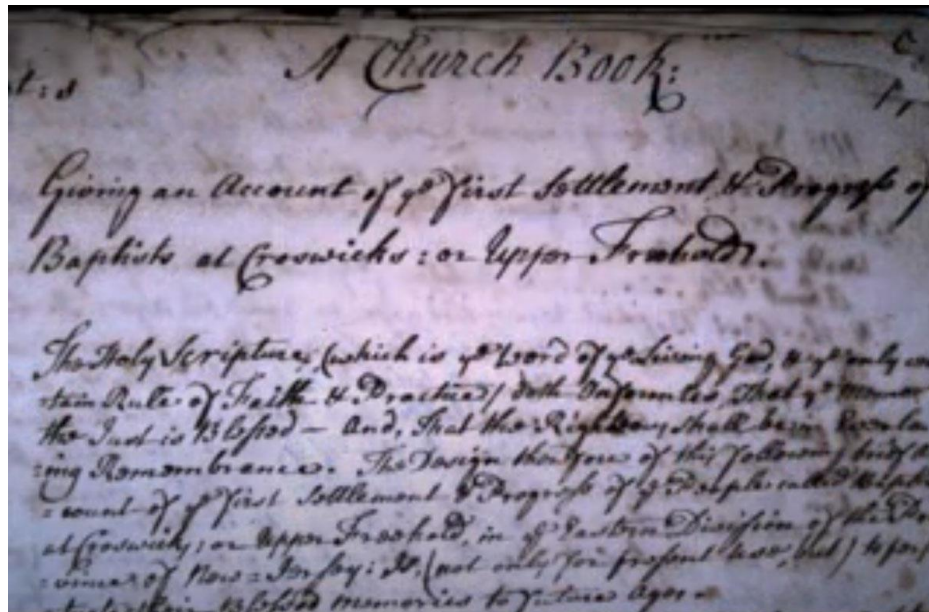 A Church Book:
Giving an Account of ye first Settlement, & Progress of
Baptists at Croswicks: or Upper Freehold.
The Holy Scripture, (which is ye Word of ye Living God, & ye only
=tain Rule of Faith & Practice) doth Informe us, That ye Memory
the Just is Blessed — And, That the Righteous shall be in Everlas
=ing Remembrance. The Design therefore of this following brief
=count of ye first Settlement & Progress of ye People called Baptis
at Croswicks, or Upper Freehold, in ye Eastern Division of the Pro
=vince of New=Jersey: Is, (not only for present use, but) to per
their Blessed memories to future Ages.